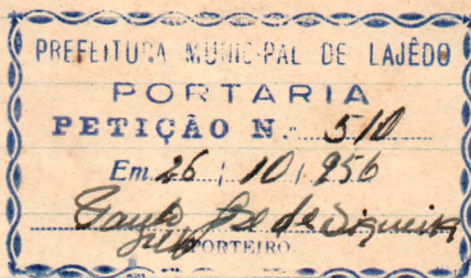 PREFEITURA MUNICIPAL DE LAJÊDO
PORTARIA
PETIÇÃO N. 510
Em 26 / 10 / 956
José de Siqueira
PORTEIRO